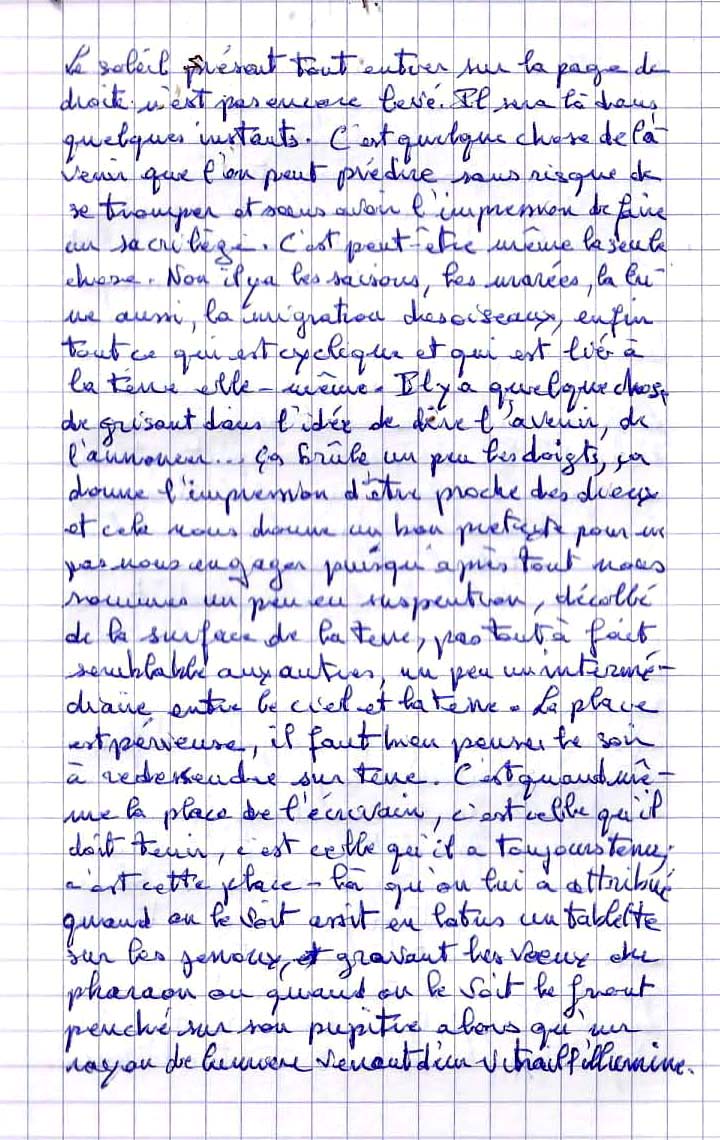 Le soleil présent tout entier sur la page de
droite n'est pas encore levé. Il sera là dans
quelques instants. C'est quelque chose de l'à
venir que l'on peut prédire sans risque de
se tromper et sans avoir l'impression de faire
un sacrilège. C'est peut-être même la seule
chose. Non il y a les saisons, les marées, la lu-
ne aussi, la migration des oiseaux, enfin
tout ce qui est cyclique et qui est lié à
la terre elle-même. Il y a quelque chose
de grisant dans l'idée de dire l'avenir, de
l'annoncer... ça brûle un peu les doigts, ça
donne l'impression d'être proche des dieux
et cela nous donne un bon pretexte pour ne
pas nous engager puisqu'après tout nous
sommes un peu en suspention, décollé
de la surface de la terre, pas tout à fait
semblable aux autres, un peu un intermé-
diaire entre le ciel et la terre. La place
est périeuse, il faut bien penser le soir
à redessendre sur terre. C'est quand mê-
me la place de l'écrivain, c'est celle qu'il
doit tenir, c'est celle qu'il a toujours tenu,
c'est cette place-là qu'on lui a attribué
quand on le voit assit en lotus un tablette
sur les genoux, et gravant les voeux du
pharaon ou quand on le voit le front
penché sur son pupitre alors qu'un
rayon de lumière venant d'un vitrail l'illumine.